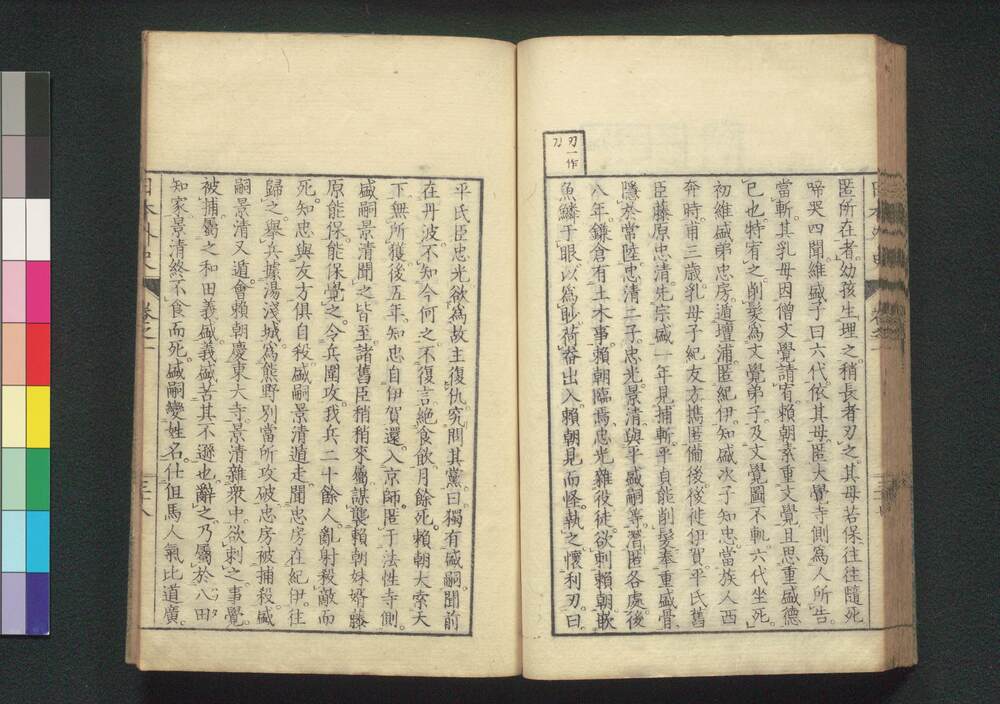 匿所在者幼孩生埋之稍長者刃之其母若保往往隨死
啼哭四聞維盛子曰六代依其母匿大覺寺側爲人所告
當斬其乳母因僧文覺請宥賴朝素重文覺且思重盛德
已也特宥之削髮爲文覺弟子及文覺圖不軌六代坐死
初維盛弟忠房遁壇浦匿紀伊知盛次子知忠當族人西
奔時甫三歲乳母子紀友方攜匿備後後徙伊賀平氏舊
臣藤原忠清先宗盛一年見捕斬平貞能削髮奉重盛骨
隱於常陸忠清二子忠光景清與平盛嗣等潛匿各處後
八年鎌倉有土木事賴朝臨焉忠光雜役徒欲刺賴朝嵌
魚鱗于眼以爲眇荷畚出入賴朝見而怪執之懷利刃曰
刃一作
刀
平氏臣忠光欲爲故主復仇究問其黨曰獨有盛嗣聞前
在丹波不知今何之不復言絕食飮月餘死賴朝大索天
下無所獲後五年知忠自伊賀還入京師匿于法性寺側
盛嗣景清聞之皆至諸舊臣稍稍來屬謀襲賴朝妹婿藤
原能保能保覺之令兵圍攻我兵二十餘人亂射殺敵而
死知忠與友方俱自殺盛嗣景清遁走聞忠房在紀伊往
歸之擧兵據湯淺城爲熊野別當所攻破忠房被捕殺盛
嗣景清又遁會賴朝慶東大寺景清雜衆中欲刺之事覺
被捕屬之和田義盛義盛苦其不遜也辭之乃屬於八田
知家景清終不食而死盛嗣變姓名仕但馬人氣比道廣
日本外史 卷之一